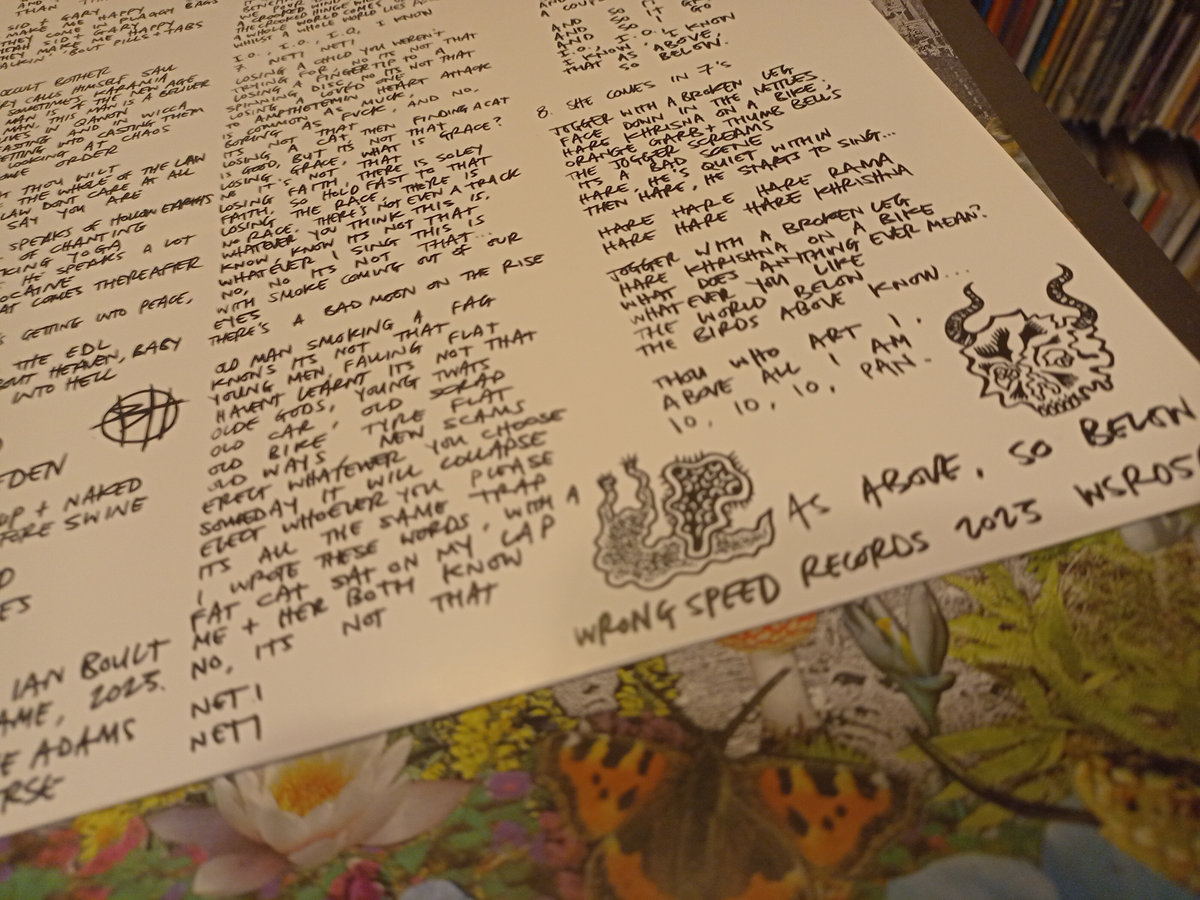 SID + GARY HAPPY
MAKE ME HAPPY
THEY COME IN PLAGGY BAGS
YEAH SID + GARY
THEY MAKE ME HAPPY
TALKIN' 'BOUT PILLS + TABS
OCCULT BOTHER
CALLS HIMSELF SAUL
SOMETIMES KARAMIA
MAN IS THE NEW AGE
MAN, THIS MAN IS A BELIEVER
IN QANON
AND IN WICCA
CASTING INTO CASTING THEM
LOOKING AT CHAOS
ORDER
THOU WILT
THE WHOLE OF THE LAW
LAW, DON'T CARE AT ALL
SAY YOU ARE
SPEAKS OF HOLLOW EARTHS
OF CHANTING
YOGA
HE SPEAKS A LOT
COMES THEREAFTER
GETTING INTO PEACE,
THE EDL
HEAVEN, BABY
INTO HELL
BH
EDEN
+ NAKED
SWINE
IAN BOULT
2025.
ADAMS
A WHOLE WORLD COMES
WHILST A WHOLE WORLD LIES
I.O., I.O., I.O, I KNOW
7. NETI NETI
LOSING A CHILD YOU WEREN'T
TRYING FOR, NO ITS NOT THAT
LOSING A FINGERTIP TO A
SPINNING DISC, NO ITS NOT THAT
LOSING A LOVED ONE
TO AMPHETEMIN HEART ATTACK
IS COMMON AS MUCK,
BORING AS FUCK, AND NO,
ITS NOT THAT
LOSING A CAT, THEN FINDING A CAT
IS GOOD, BUT ITS NOT THAT
LOSING GRACE, WHAT IS GRACE?
NO IT'S NOT THAT
LOSING FAITH, THERE IS SOLEY
FAITH, SO HOLD FAST TO THAT
LOSING THE RACE, THERE IS
NO RACE. THERE'S NOT EVEN A TRACK
WHATEVER YOU THINK THIS IS,
KNOW, KNOW ITS NOT THAT
WHATEVER I SING THIS IS
NO, NO ITS NOT THAT...
WITH SMOKE COMING OUT OF OUR
EYES
THERE'S A BAD MOON ON THE RISE
OLD MAN SMOKING A FAG
KNOWS ITS NOT THAT
YOUNG MEN, FALLING FLAT
HAVENT LEARNT ITS NOT THAT
OLDE GODS, YOUNG TWATS
OLD CAR, OLD SCRAP
OLD BIKE, TYRE FLAT
OLD WAYS, NEW SCAMS
ERECT WHATEVER YOU CHOOSE
SOMEDAY IT WILL COLLAPSE
ELECT WHOEVER YOU PLEASE
ITS ALL THE SAME TRAP
I WROTE THESE WORDS, WITH A
FAT CAT SAT ON MY LAP
ME + HER BOTH KNOW
NO, ITS NOT THAT
NETI
NETI
AND SO IT GOES
AND SO IT GO
I.O., I.O., I KNOW
I KNOW
THAT AS ABOVE,
SO BELOW.
8. SHE COMES IN 7'S
JOGGER WITH A BROKEN LEG
FACE DOWN IN THE NETTLES.
HARE KHRISNA ON A BIKE,
ORANGE GARB + THUMB BELLS
THE JOGGER SCREAMS
ITS A BAD SCENE
HARE, HE'S QUIET WITHIN
THEN HARE, HE STARTS TO SING...
HARE HARE HARE RAMA
HARE HARE HARE KHRISHNA
JOGGER WITH A BROKEN LEG
HARE KHRISHNA ON A BIKE
WHAT DOES ANYTHING EVER MEAN?
WHAT EVER YOU LIKE
THE WORLD BELOW
THE BIRDS ABOVE KNOW...
THOU WHO ART I.
ABOVE ALL I AM
IO, IO, IO, PAN.
AS ABOVE, SO BELOW
WRONG SPEED RECORDS 2025 WSRDS